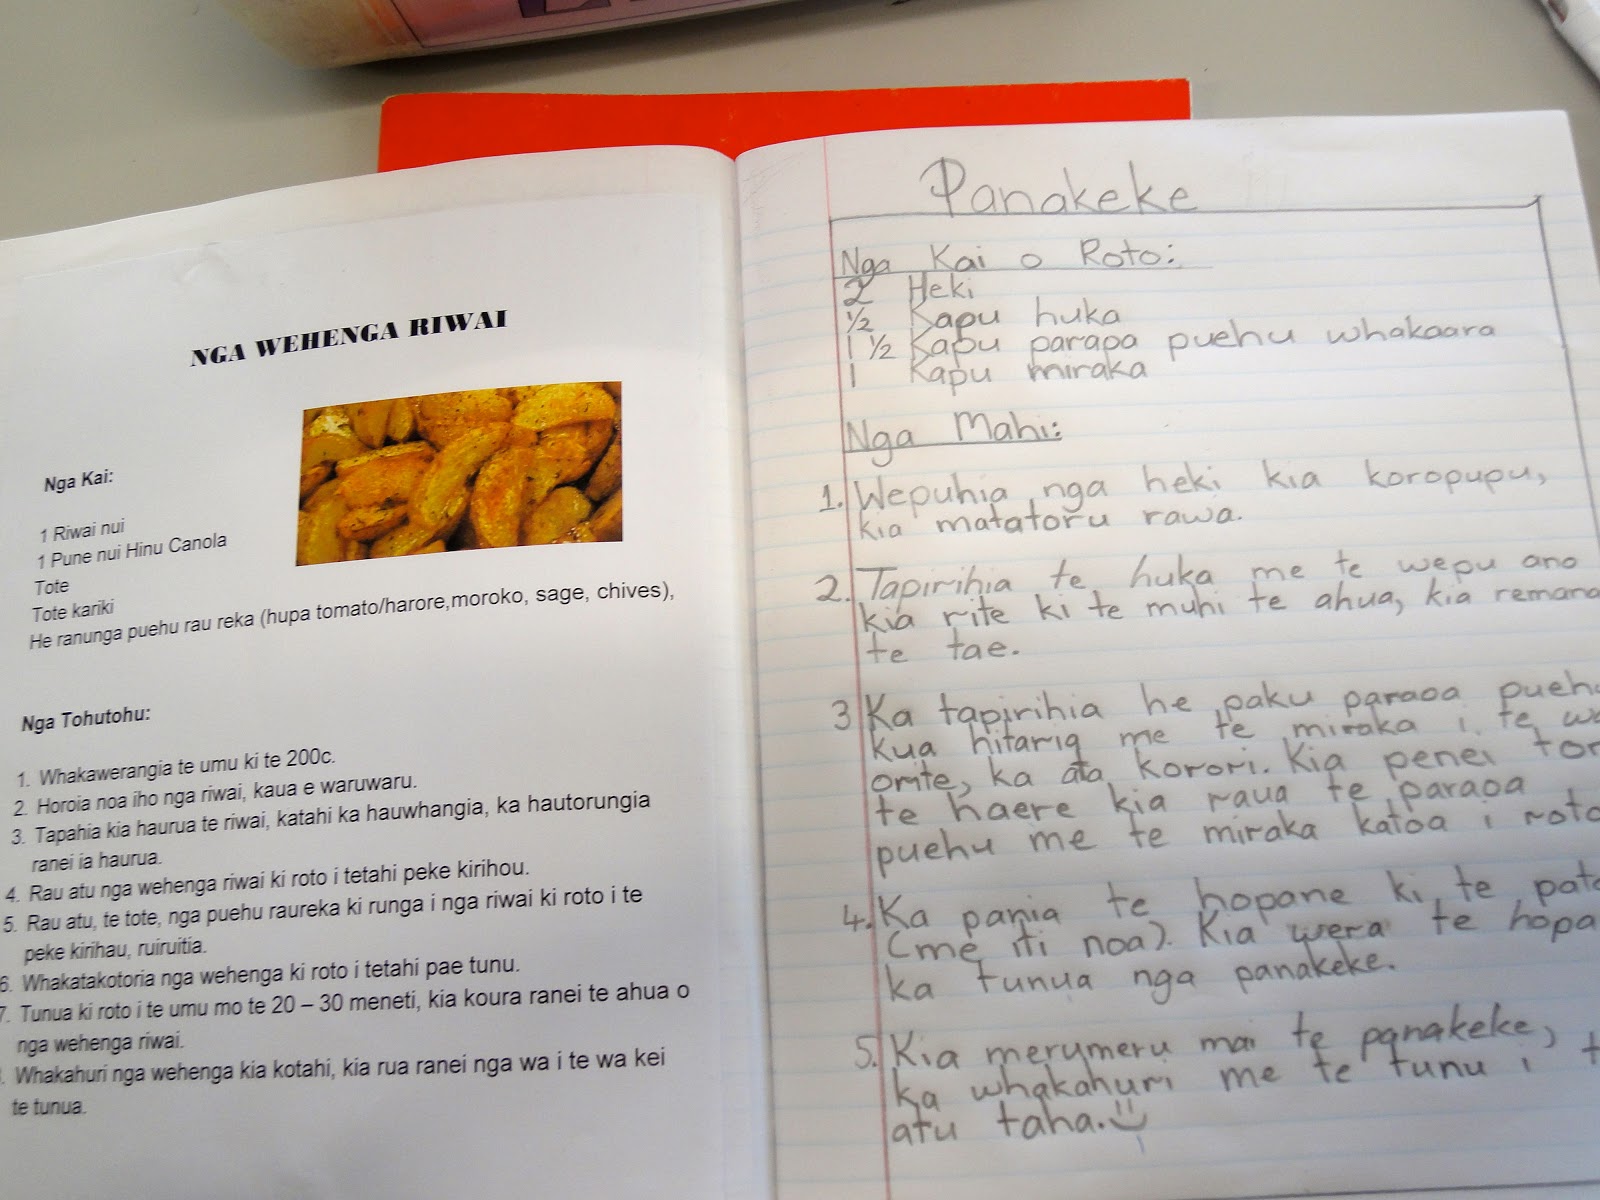 NGA WEHENGA RIWAI
Nga Kai:
1 Riwai nui
1 Pune nui Hinu Canola
Tote
Tote kariki
He ranunga puehu rau reka (hupa tomato/harore,moroko, sage, chives),
Nga Tohutohu:
1. Whakawerangia te umu ki te 200c.
2. Horoia noa iho nga riwai, kaua e waruwaru.
3. Tapahia kia haurua te riwai, katahi ka hauwhangia, ka hautorungia
ranei ia haurua.
4. Rau atu nga wehenga riwai ki roto i tetahi peke kirihou.
5. Rau atu, te tote, nga puehu raureka ki runga i nga riwai ki roto i te
peke kirihau, ruiruitia.
6. Whakatakotoria nga wehenga ki roto i tetahi pae tunu.
7. Tunua ki roto i te umu mo te 20 – 30 meneti, kia koura ranei te ahua o
nga wehenga riwai.
Whakahuri nga wehenga kia kotahi, kia rua ranei nga wa i te wa kei
te tunua.
Panakeke
Nga Kai o Roto:
2 Heki
1/2 Kapu huka
1 1/2 Kapu paraoa puehu whakaara
1 Kapu miraka
Nga Mahi:
1. Wepuhia nga heki kia koropupu,
kia matatoru rawa.
2. Tapirihia te huka me te wepu ano
kia rite ki te muhi te ahua, kia remana
te tae.
3 Ka tapirihia he paku paraoa
kua hitaria me te miraka i te
orite, ka ata korori. Kia penei
te haere kia raua te paraoa
puehu me te miraka katoa i roto
4. Ka pania te hopane ki te
(me iti noa). Kia wera te
ka tunua nga panakeke.
5. Kia merumeru mai te panakeke,
ka whakahuri me te tunu i
atu taha.